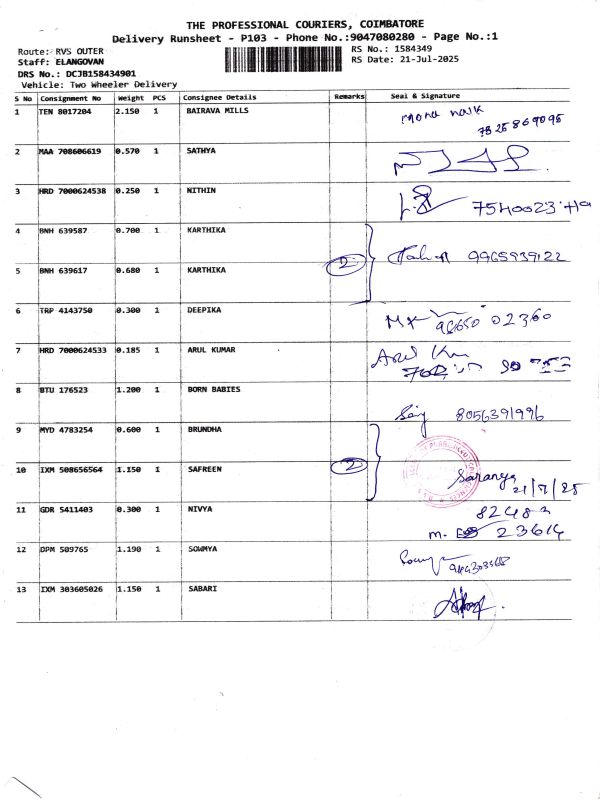 THE PROFESSIONAL COURIERS, COIMBATORE
Delivery Runsheet - P103 - Phone No.:9047080280 - Page No.:1
Route: RVS OUTER
RS No.: 1584349
Staff: ELANGOVAN
RS Date: 21-Jul-2025
DRS No.: DCJB158434901
Vehicle: Two Wheeler Delivery
S No Consignment No Weight PCS Consignee Details Remarks Seal & Signature
1 TEN 8017204 2.150 1 BAIRAVA MILLS
7525869095
2 MAA 708606619 0.570 1 SATHYA
3 HRD 7000624538 0.250 1 NITHIN
4 BNH 639587 0.700 1 KARTHIKA
2 9965939122
5 BNH 639617 0.680 1 KARTHIKA
6 TRP 4143750 0.300 1 DEEPIKA
96650 02360
7 HRD 7000624533 0.185 1 ARUL KUMAR
8 BTU 176523 1.200 1 BORN BABIES
8056391996
9 MYD 4783254 0.600 1 BRUNDHA
10 IXM 508656564 1.150 1 SAFREEN 2 Saranya
21/7/25
11 GDR 5411403 0.300 1 NIVYA 82483
m. 23614
12 DPM 509765 1.190 1 SOWMYA
13 IXM 303605026 1.150 1 SABARI